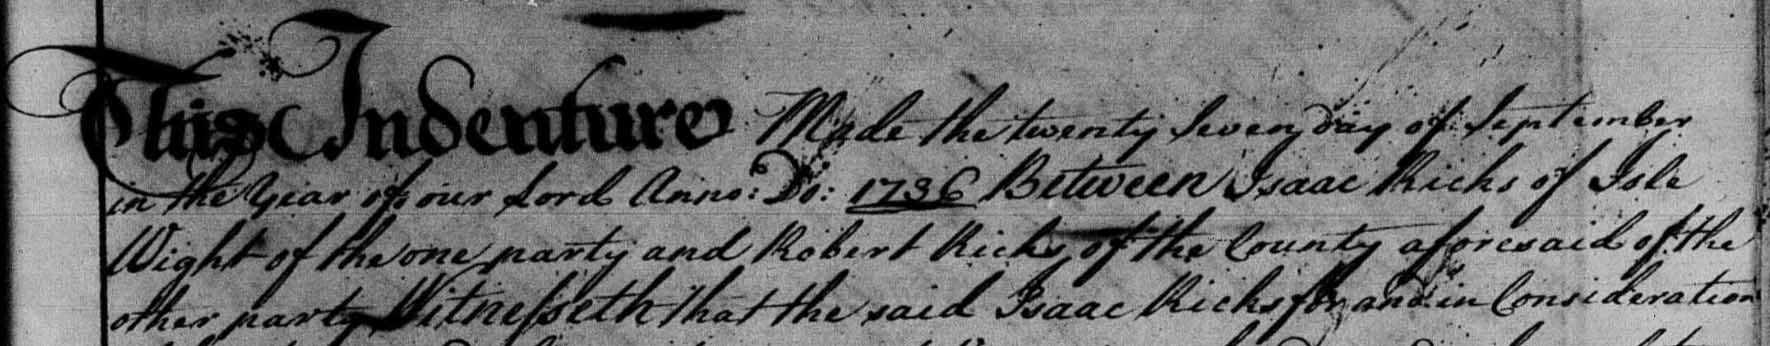 This Indenture Made the twenty Seven day of September
in the Year of our Lord Anno: Do: 1736 Between Isaac Ricks of Isle
Wight of the one party and Robert Ricks of the County aforesaid of the
other party Witnesseth that the said Isaac Ricks for and in Consideration